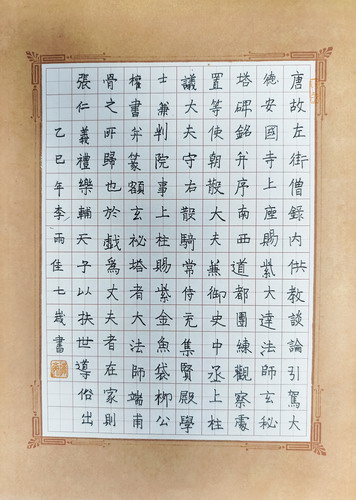 唐故左街僧錄內供教談論引駕大
德安國寺上座賜紫大達法師玄秘
塔碑銘并序南西道都團練觀察處
置等使朝散大夫兼御史中丞上柱
議大夫守右散騎常侍充集賢殿學
士兼判院事上柱賜紫金魚袋柳公
權書并篆額玄祕塔者大法師端甫
骨之所歸也於戲為丈夫者在家則
張仁義禮樂輔天子以扶世導俗出
乙巳年李雨佳七歲書